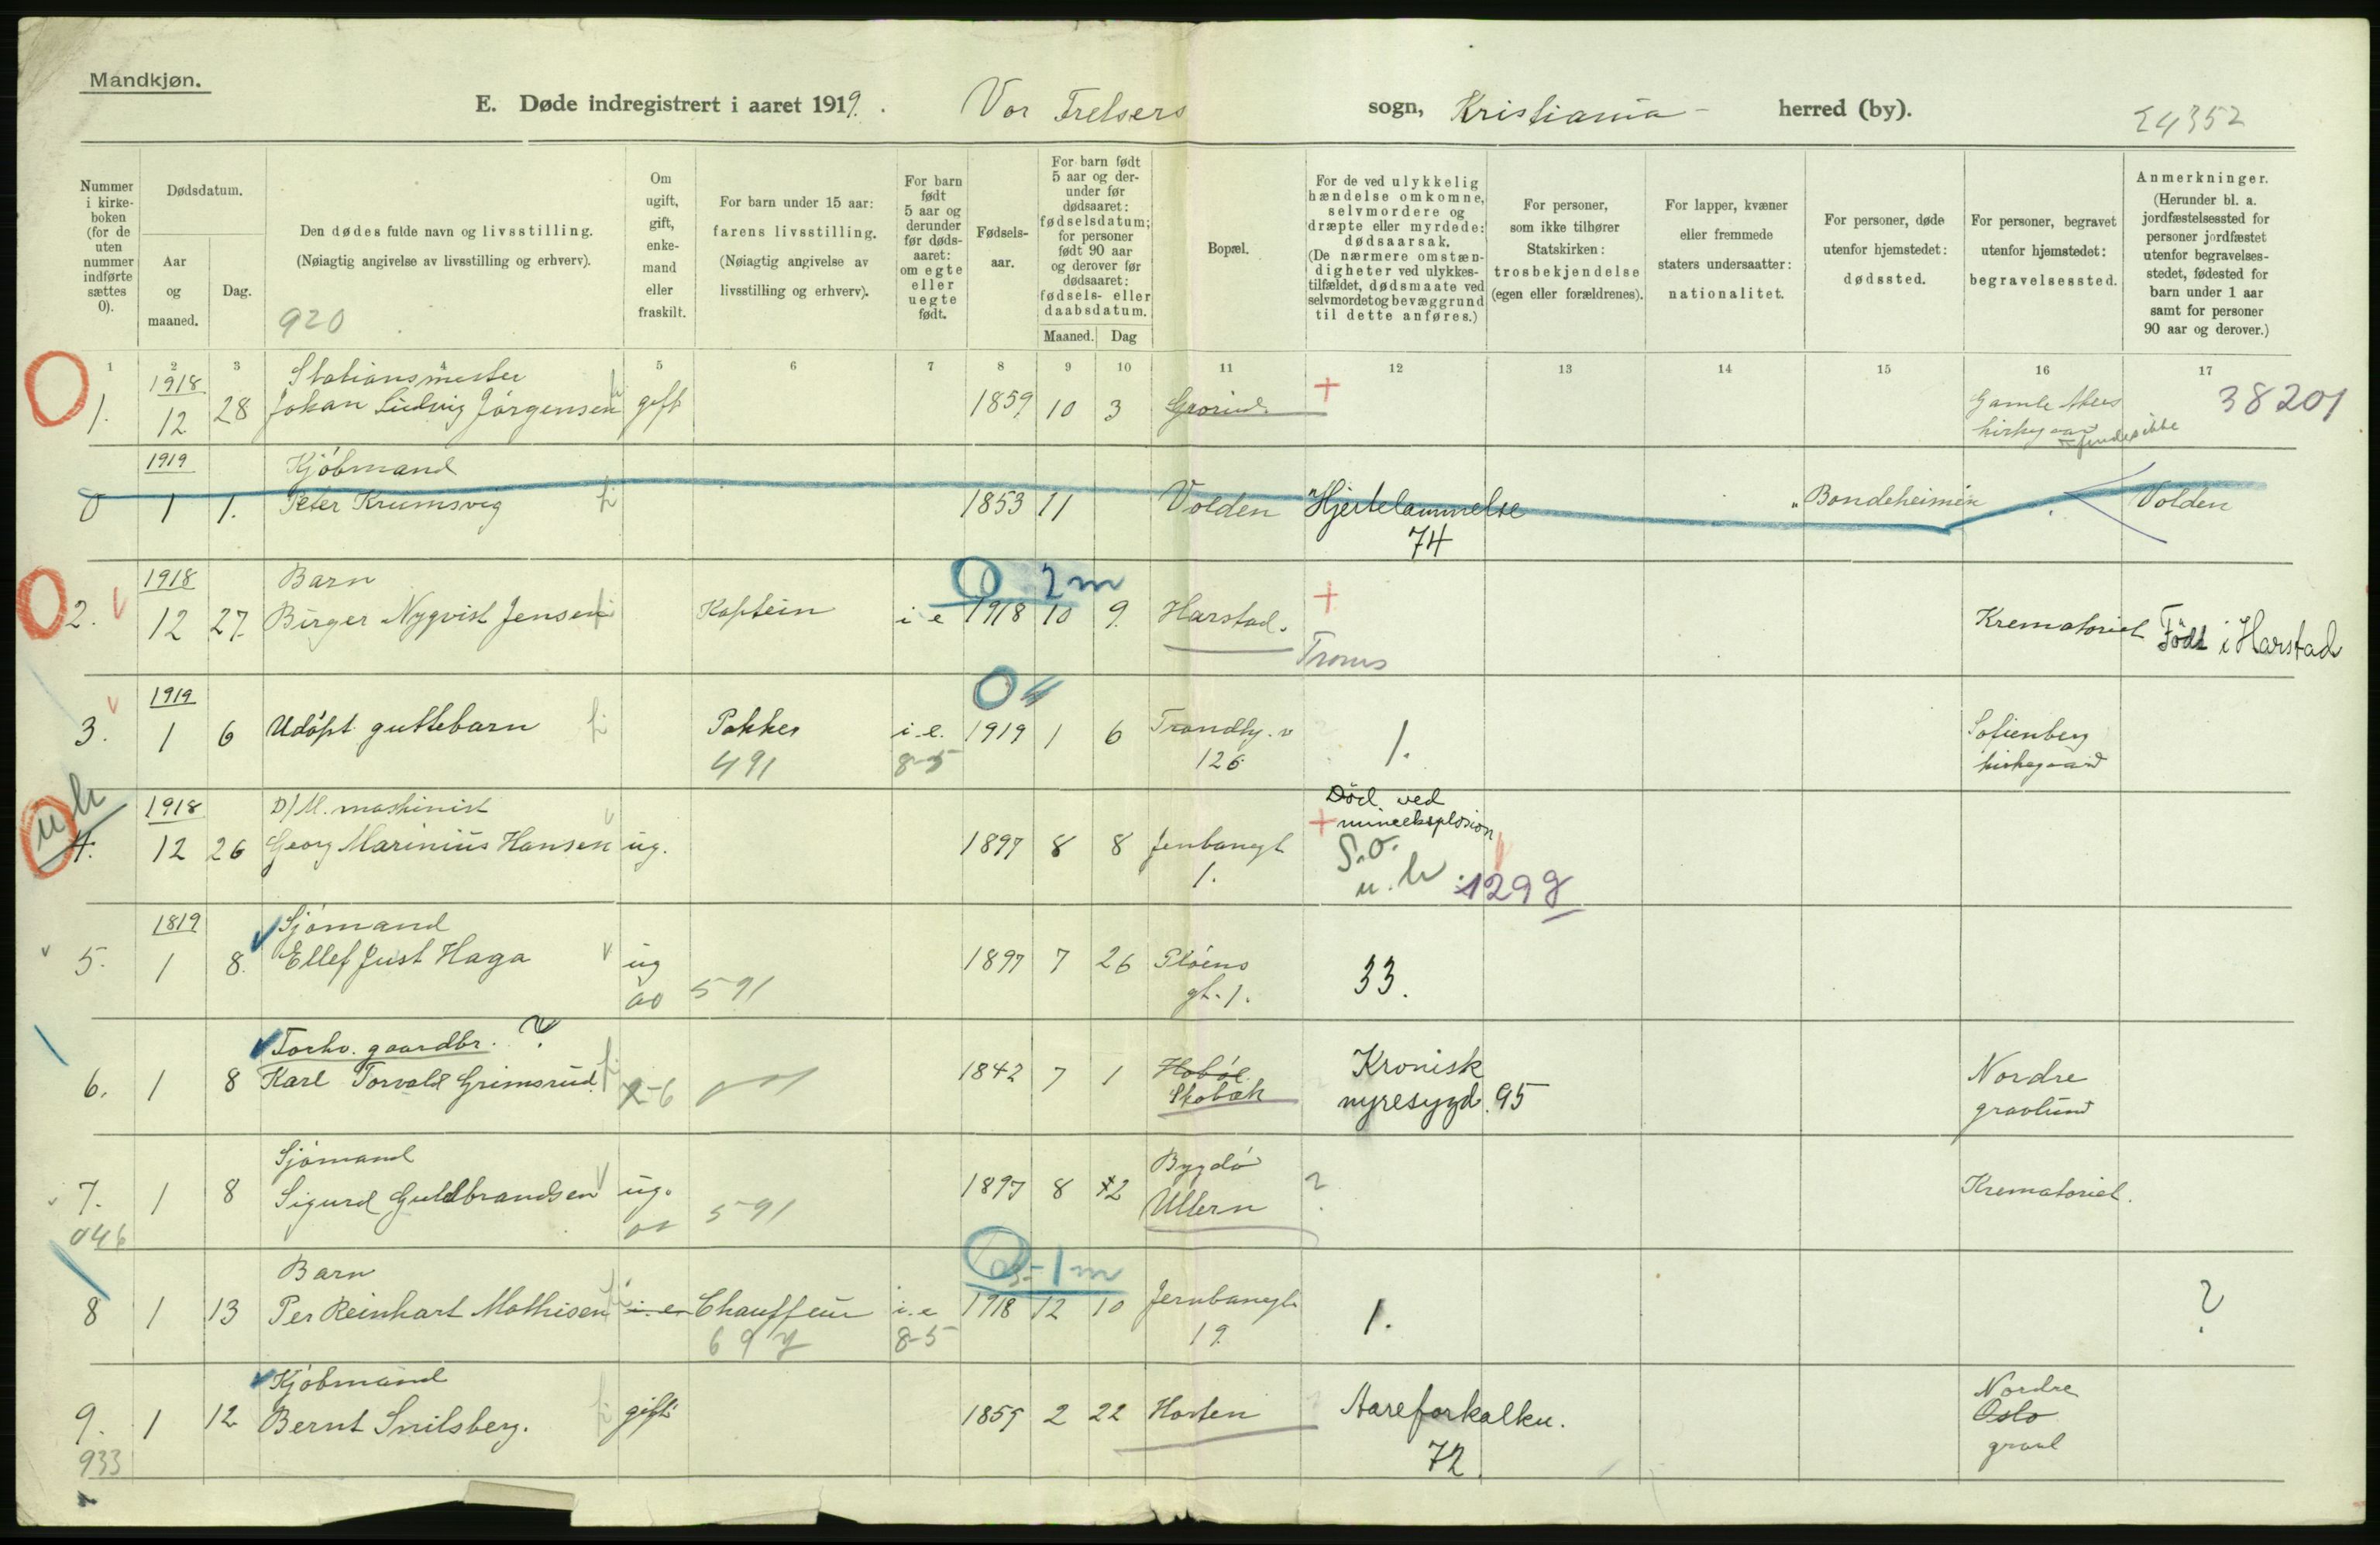 Mandkjøn.
E. Døde indregistrert i aaret 1919. Vor Frelsers sogn, Kristiania herred (by). 24352
Nummer i kirkeboken (for de uten nummer indførte sættes 0).
Dødsdatum.
Aar og maaned.
Dag.
Den dødes fulde navn og livsstilling.
(Nøiagtig angivelse av livsstilling og erhverv).
920
Om ugift, gift, enkemand eller fraskilt.
For barn under 15 aar: farens livsstilling.
(Nøiagtig angivelse av livsstilling og erhverv).
For barn født 5 aar og derunder før dødsaaret: om egte eller uegte født.
Fødselsaar.
For barn født 5 aar og derunder før dødsaaret: fødselsdatum; for personer født 90 aar og derover før dødsaaret: fødsels- eller daabsdatum.
Maaned. Dag
Bopæl.
For de ved ulykkelig hændelse omkomne, selvmordere og dræpte eller myrdede: dødsaarsak.
(De nærmere omstændigheter ved ulykkestilfældet, dødsmaate ved selvmordet og bevæggrund til dette anføres.)
For personer, som ikke tilhører Statskirken: trosbekjendelse (egen eller forældrenes).
For lapper, kvæner eller fremmede staters undersaatter: nationalitet.
For personer, døde utenfor hjemstedet: dødssted.
For personer, begravet utenfor hjemstedet: begravelsessted.
Anmerkninger.
(Herunder bl. a. jordfæstelsessted for personer jordfæstet utenfor begravelsesstedet, fødested for barn under 1 aar samt for personer 90 aar og derover.)
1 2 3 4 5 6 7 8 9 10 11 12 13 14 15 16 17
1918 Stationsmester
1. 12 28 Johan Ludvig Jørgensen gift 1859 10 3 Grorud + Gamle Akers kirkegaard findes ikke 38201
1919 Kjøbmand
0 1 1. Peter Krumsvig 1853 11 Volden "Hjertelammelse "Bondeheimen Volden
74
1918 Barn 0 2 m
2. 12 27. Birger Nyqvist Jensen Kaptein i e 1918 10 9. Harstad. + Krematoriet Født i Harstad
Troms
1919 0
3. 1 6 Udøpt guttebarn Pakker i.e. 1919 1 6 Trondhj. v 1. Sofienberg
491 8-5 126 kirkegaard
1918 D/M. maskinist Død ved
4. 12 26 Georg Marinius Hansen ug. 1897 8 8 Jernbanegt + mineeksplosion
1. S.O. u.h 1298
1819 Sjømand
5. 1 8. Ellef Just Haga ug 1897 7 26 Pløens 33.
591 gt. 1.
Forhv. gaardbr. ?
6. 1 8 Karl Torvald Grimsrud. 1842 7 1 Hobøl Kronisk Nordre
x-6 Skobæk nyresygd. 95 gravlund
Sjømand Bygdø
7. 1 8 Sigurd Guldbrandsen ug. 1897 8 2 Ullern ? Krematoriet.
046 591
Barn 0-1 m
8 1 13 Per Reinhart Mathisen i.e Chauffeur i.e 1918 12 10 Jernbanegt. 1. ?
8-5 19
Kjøbmand Nordre
9. 1 12 Bernt Snilsberg. gift. 1859 2 22 Horten Aareforkalkn. Oslo
933 72 gravl